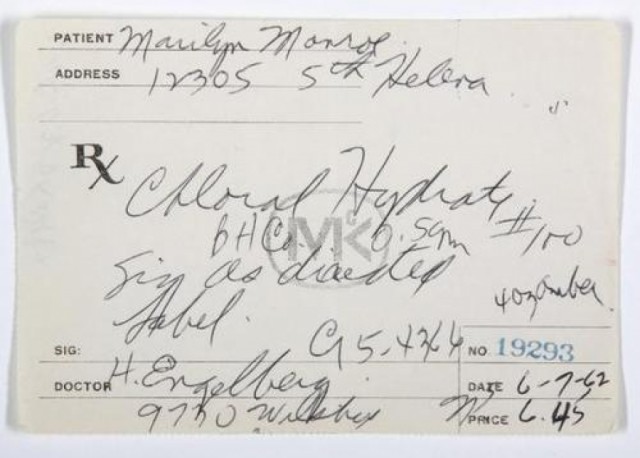 PATIENT Marilyn Monroe
ADDRESS 12305 5th Helena
Rx Chloral Hydrate
0.5gm #100
Sig As directed
4oz amber
Label.
G 5-4364
SIG: NO. 19293
DOCTOR H. Engelberg DATE 6-7-62
9730 Wilshire PRICE 6.45